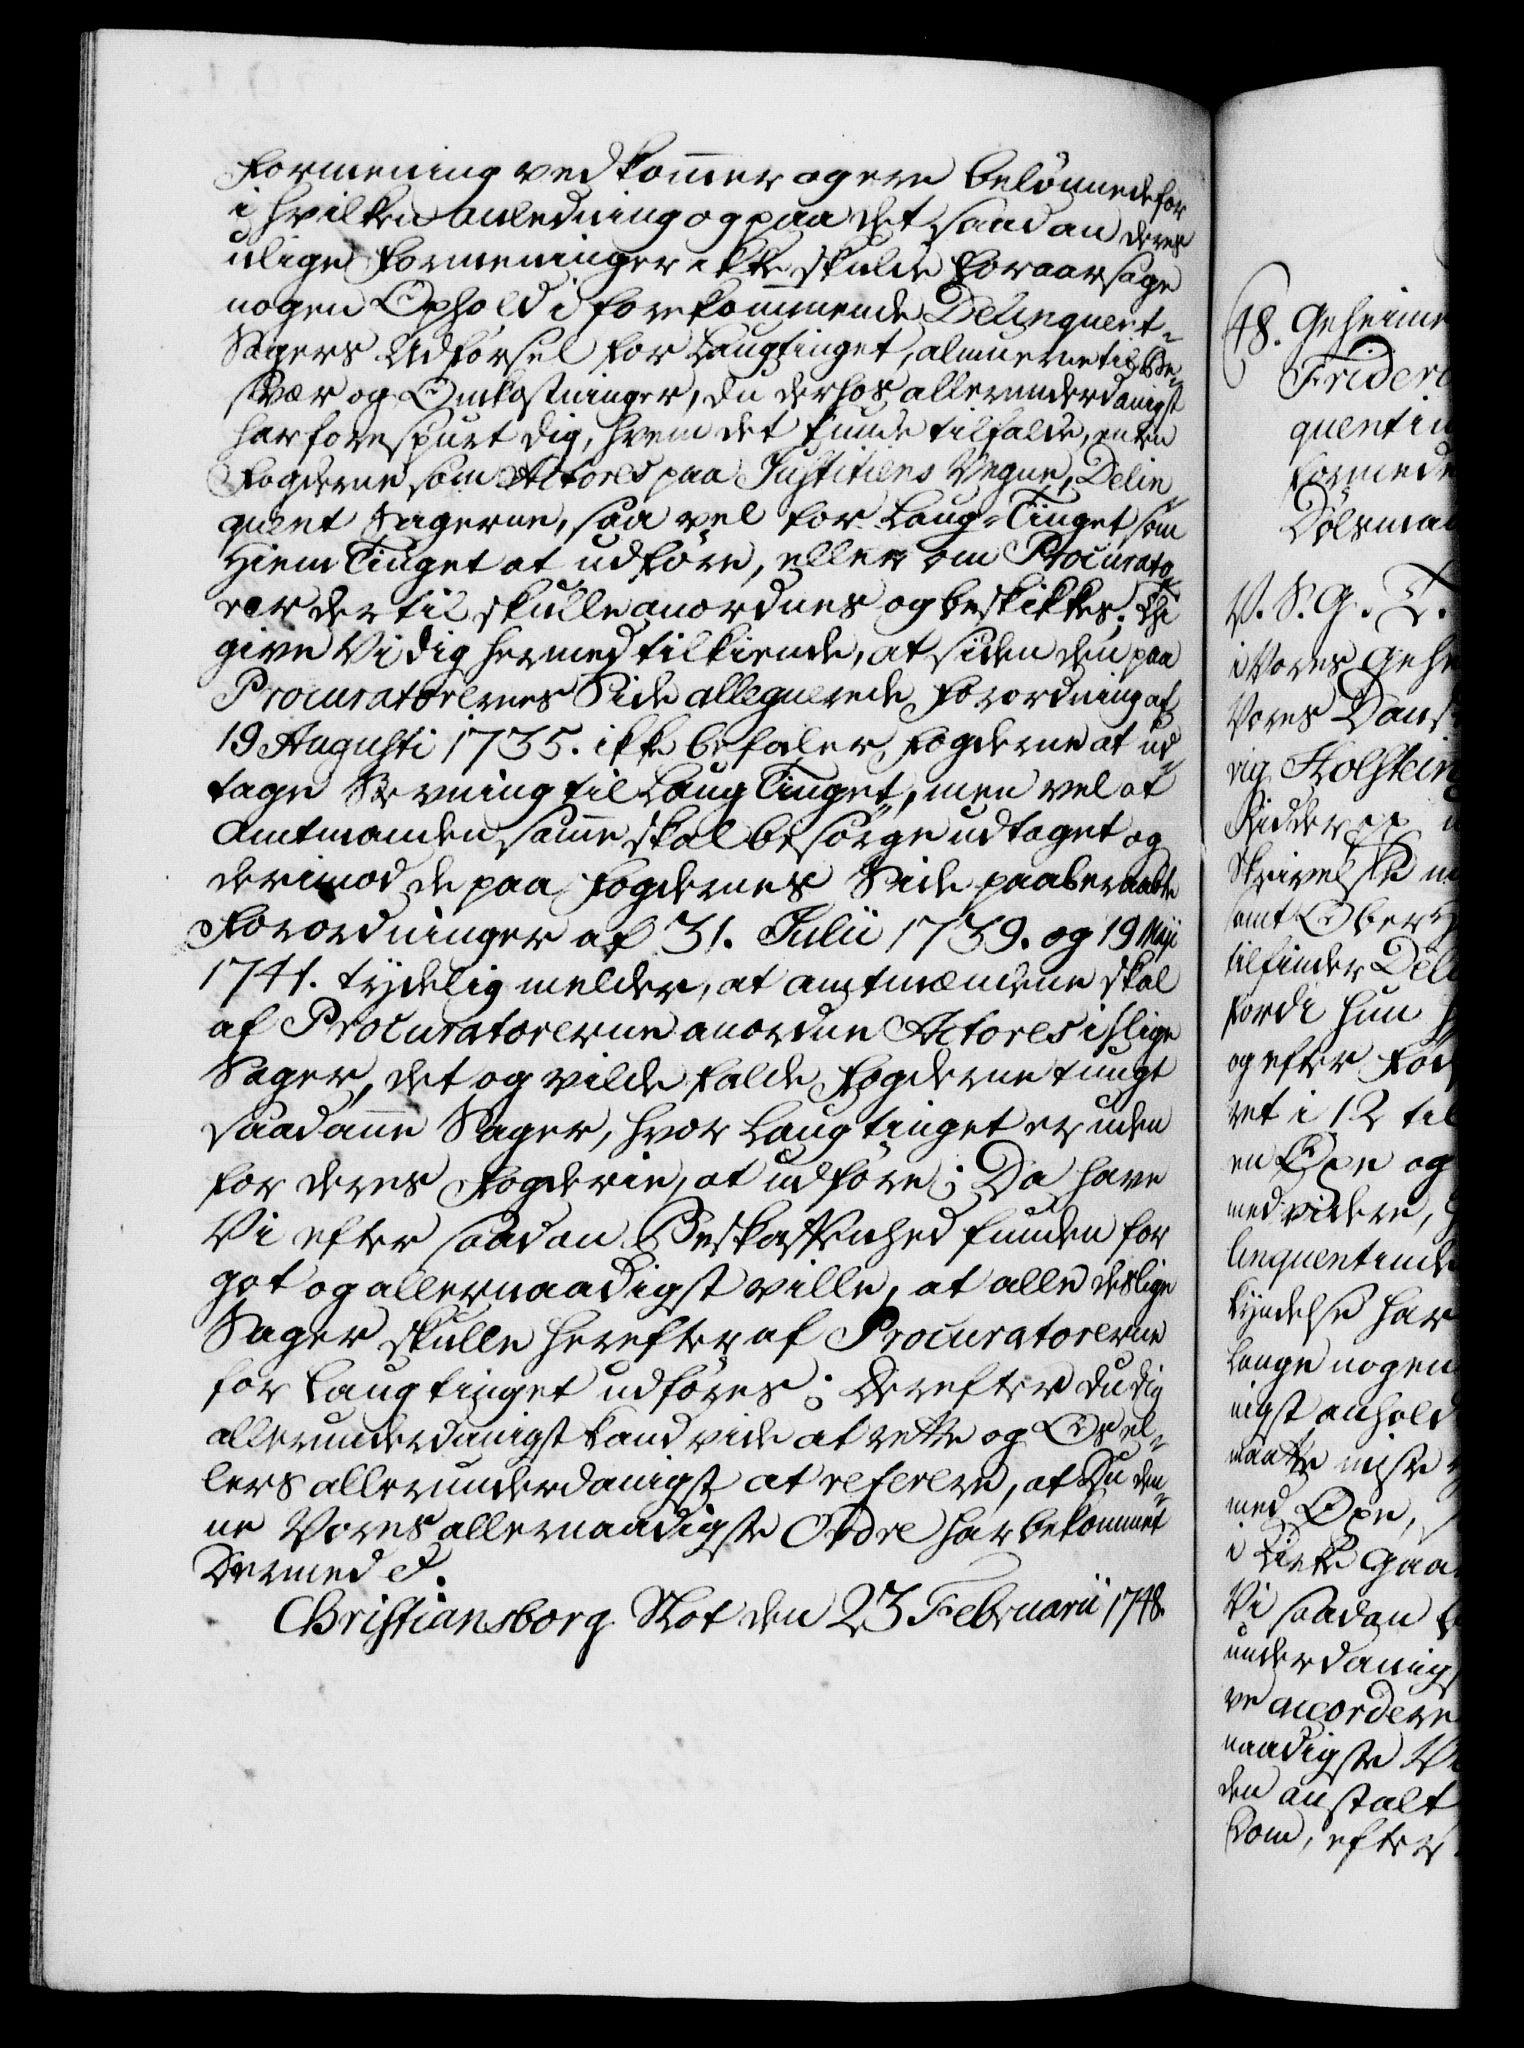 Formening vedkommer og ere belönnede for
i hvilken anledning og paa det saadan deres
ulige Formeninger ikke skulde foraarsage
nogen Ophold i forekommende Delinquent-
Sagers Udförsel for Laugtinget, almuen til Be-
svær og Omkostninger, du derhos allerunderdanigst
har forespurt dig, hvem det kunde tilfalde, enten
Fogderne som Actores paa Justitiens Vegne, Delin-
quent Sagerne, saa vel for Laug-Tinget som
Hiem Tinget at udföre, eller om Procurato-
rer dertil skulle anordnes og beskikkes; Thi
give Vi dig hermed tilkiende, at siden den paa
Procuratorernes Side alleguerede Forordning af
19 Augusti 1735. ikke befaler Fogderne at ud-
tage Stevning til Laug Tinget, men vel at
Amtmanden samme skal besørge udtaget og
derimod de paa Fogdernes Side paaberaabte
Forordninger af 31. Julii 1739. og 19 Maji
1741. tydelig melder, at Amtmændene skal
af Procuratorerne anordne Actores i slige
Sager, det og vilde falde Fogderne tungt
saadanne Sager, hvor Laugtinget er uden
for deres Fogderie, at udföre; Da have
Vi efter saadan Beskaffenhed funden for
got og allernaadigst ville, at alle deslige
Sager skulle herefter af Procuratorerne
for Laugtinget udföres; Derefter du dig
allerunderdanigst kand vide at rette og Os el-
lers allerunderdanigst at referere, at Du den-
ne Vores allernaadigste Ordre har bekommet
Dermed &.
Christiansborg Slot den 23 Februarii 1748.
48. Geheime
Frideri
quentin
formede
Dölsmaa
V. S. G. T.
i Vores Gehe
Vores Dansk
vig Holstein
Ridder pp
Skrivelse
samt Ober H
tilfinder Deli
fordi hun
og efter Föd
ret i 12 til
en Öxe og
med videre,
linquentinde
kyndelse har
lange nogen
nigst anhold
maatte miste
med Öxe,
i Kirke Gaa
Vi saadan
underdanigs
ve accordere
naadigste Vi
den anstalt
Dom, efter